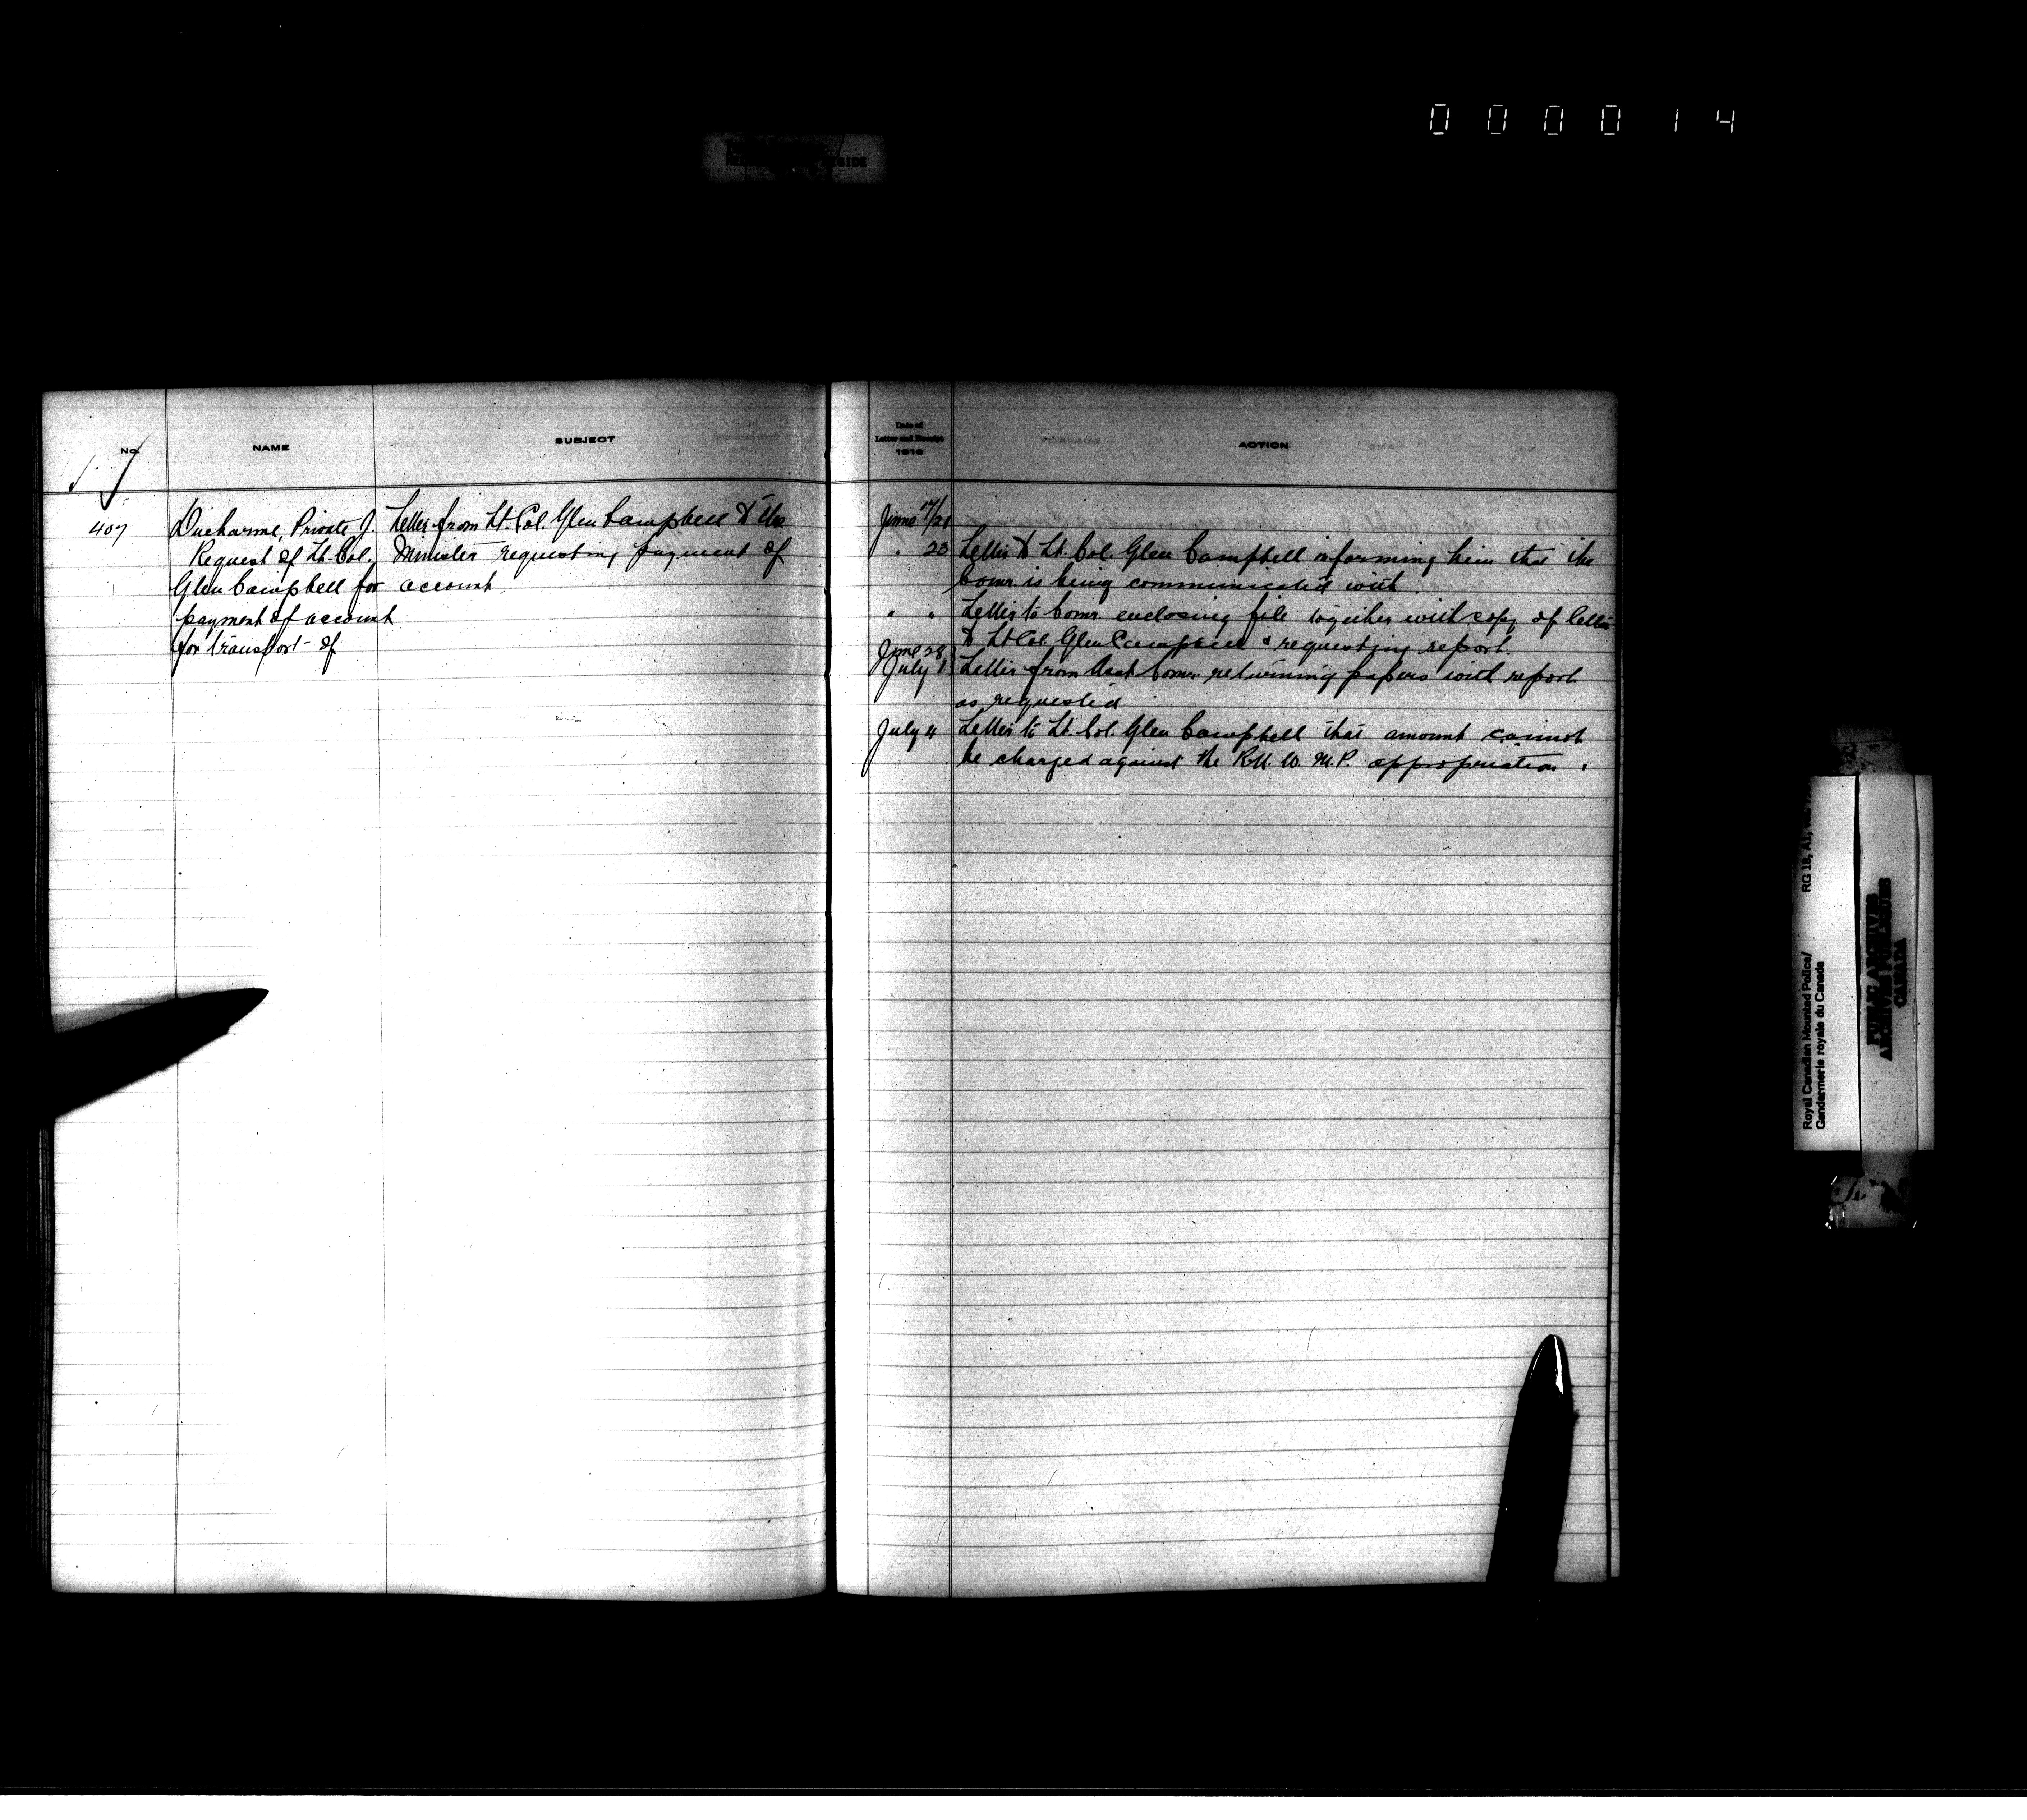 000014
No.
NAME
SUBJECT
407
Ducharme, Private J.
Request of Lt. Col.
Glen Campbell for
payment of account
for transport of
Letter from Lt. Col. Glen Campbell to the
Minister requesting payment of
account
Date of
Letter and Receipt
1916
ACTION
June 17/21
" 23 Letter to Lt. Col. Glen Campbell informing him that the
Comr. is being communicated with
" " Letter to Comr. enclosing file together with copy of letter
to Lt. Col. Glen Campbell & requesting report.
June 28
July 1 Letter from Asst Comr. returning papers with report
as requested
July 4 Letter to Lt. Col. Glen Campbell that amount cannot
be charged against the R.N.W.M.P. appropriation.
Royal Canadian Mounted Police/
Gendarmerie royale du Canada
RG 18, A1,
PUBLIC ARCHIVES
ARCHIVES PUBLIQUES
CANADA